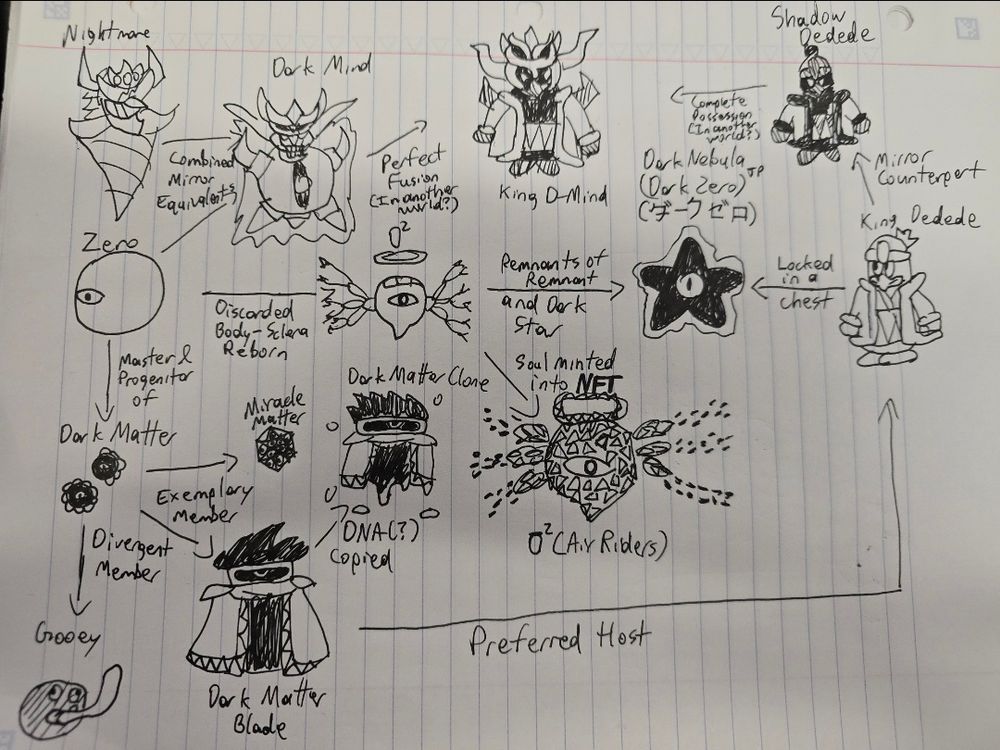 Nightmare
Dark Mind
Shadow
Dedede
Combined
Mirror
Equivalents
Perfect
Fusion
(In another
world?)
King D-Mind
Complete
Possession
(In another
world?)
Mirror
Counterpart
Dark Nebula JP
(Dark Zero)
(ダークゼロ)
King Dedede
Zero
0²
Discarded
Body-Sclera
Reborn
Remnants of
Remnant
and Dark
Star
Locked
in a
chest
Master &
Progenitor
of
Soul minted
into NFT
Dark Matter Clone
Miracle
Matter
Dark Matter
Exemplary
Member
DNA(?)
Copied
0² (Air Riders)
Divergent
Member
Gooey
Preferred Host
Dark Matter
Blade